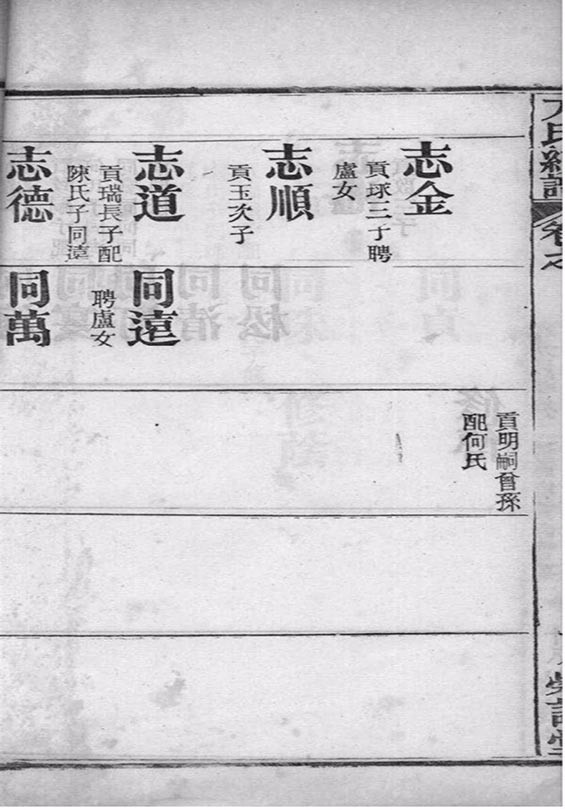 方氏續譜
卷之
貢明嗣曾孫
配何氏
志金
貢球三子聘
盧女
志順
貢玉次子
志道
貢瑞長子配
陳氏子同遠
志德
同遠
聘盧女
同萬